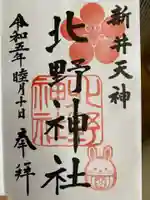 新井天神
北野神社
北野神社
令和五年睦月十日
奉拝